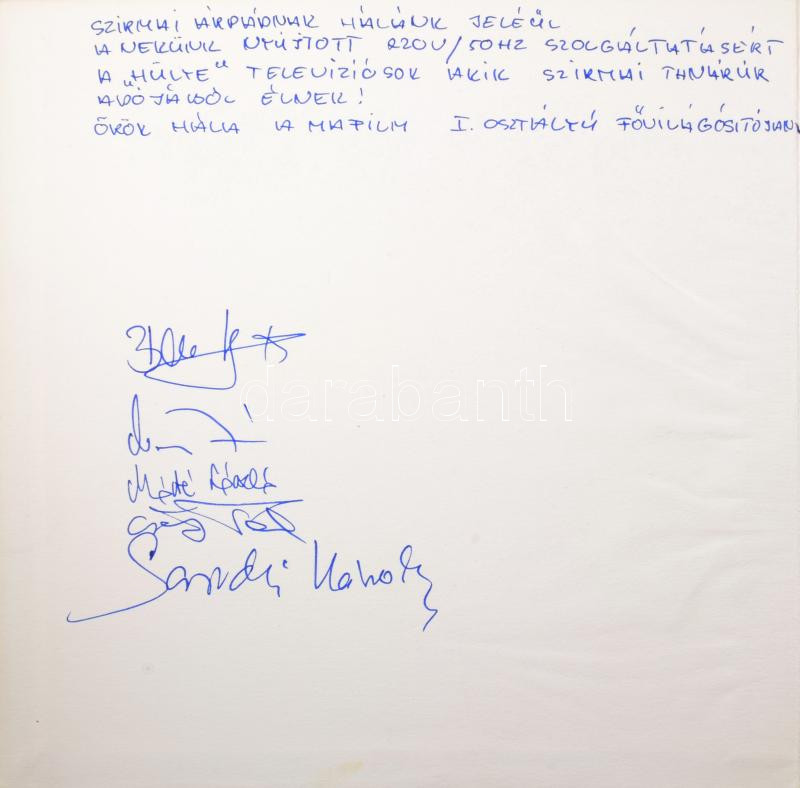 SZIRMAI ÁRPÁDNAK HÁLÁNK JELÉÜL
A NEKÜNK NYÚJTOTT 220V/50HZ SZOLGÁLTATÁSÉRT
A "HÜLYE" TELEVÍZIÓSOK AKIK SZIRMAI TANÁRÚR
ADÓJÁBÓL ÉLNEK!
ÖRÖK HÁLA A MAFILM I. OSZTÁLYÚ FŐVILÁGÓSÍTÓJAN
darabanth
Máté László
Károly